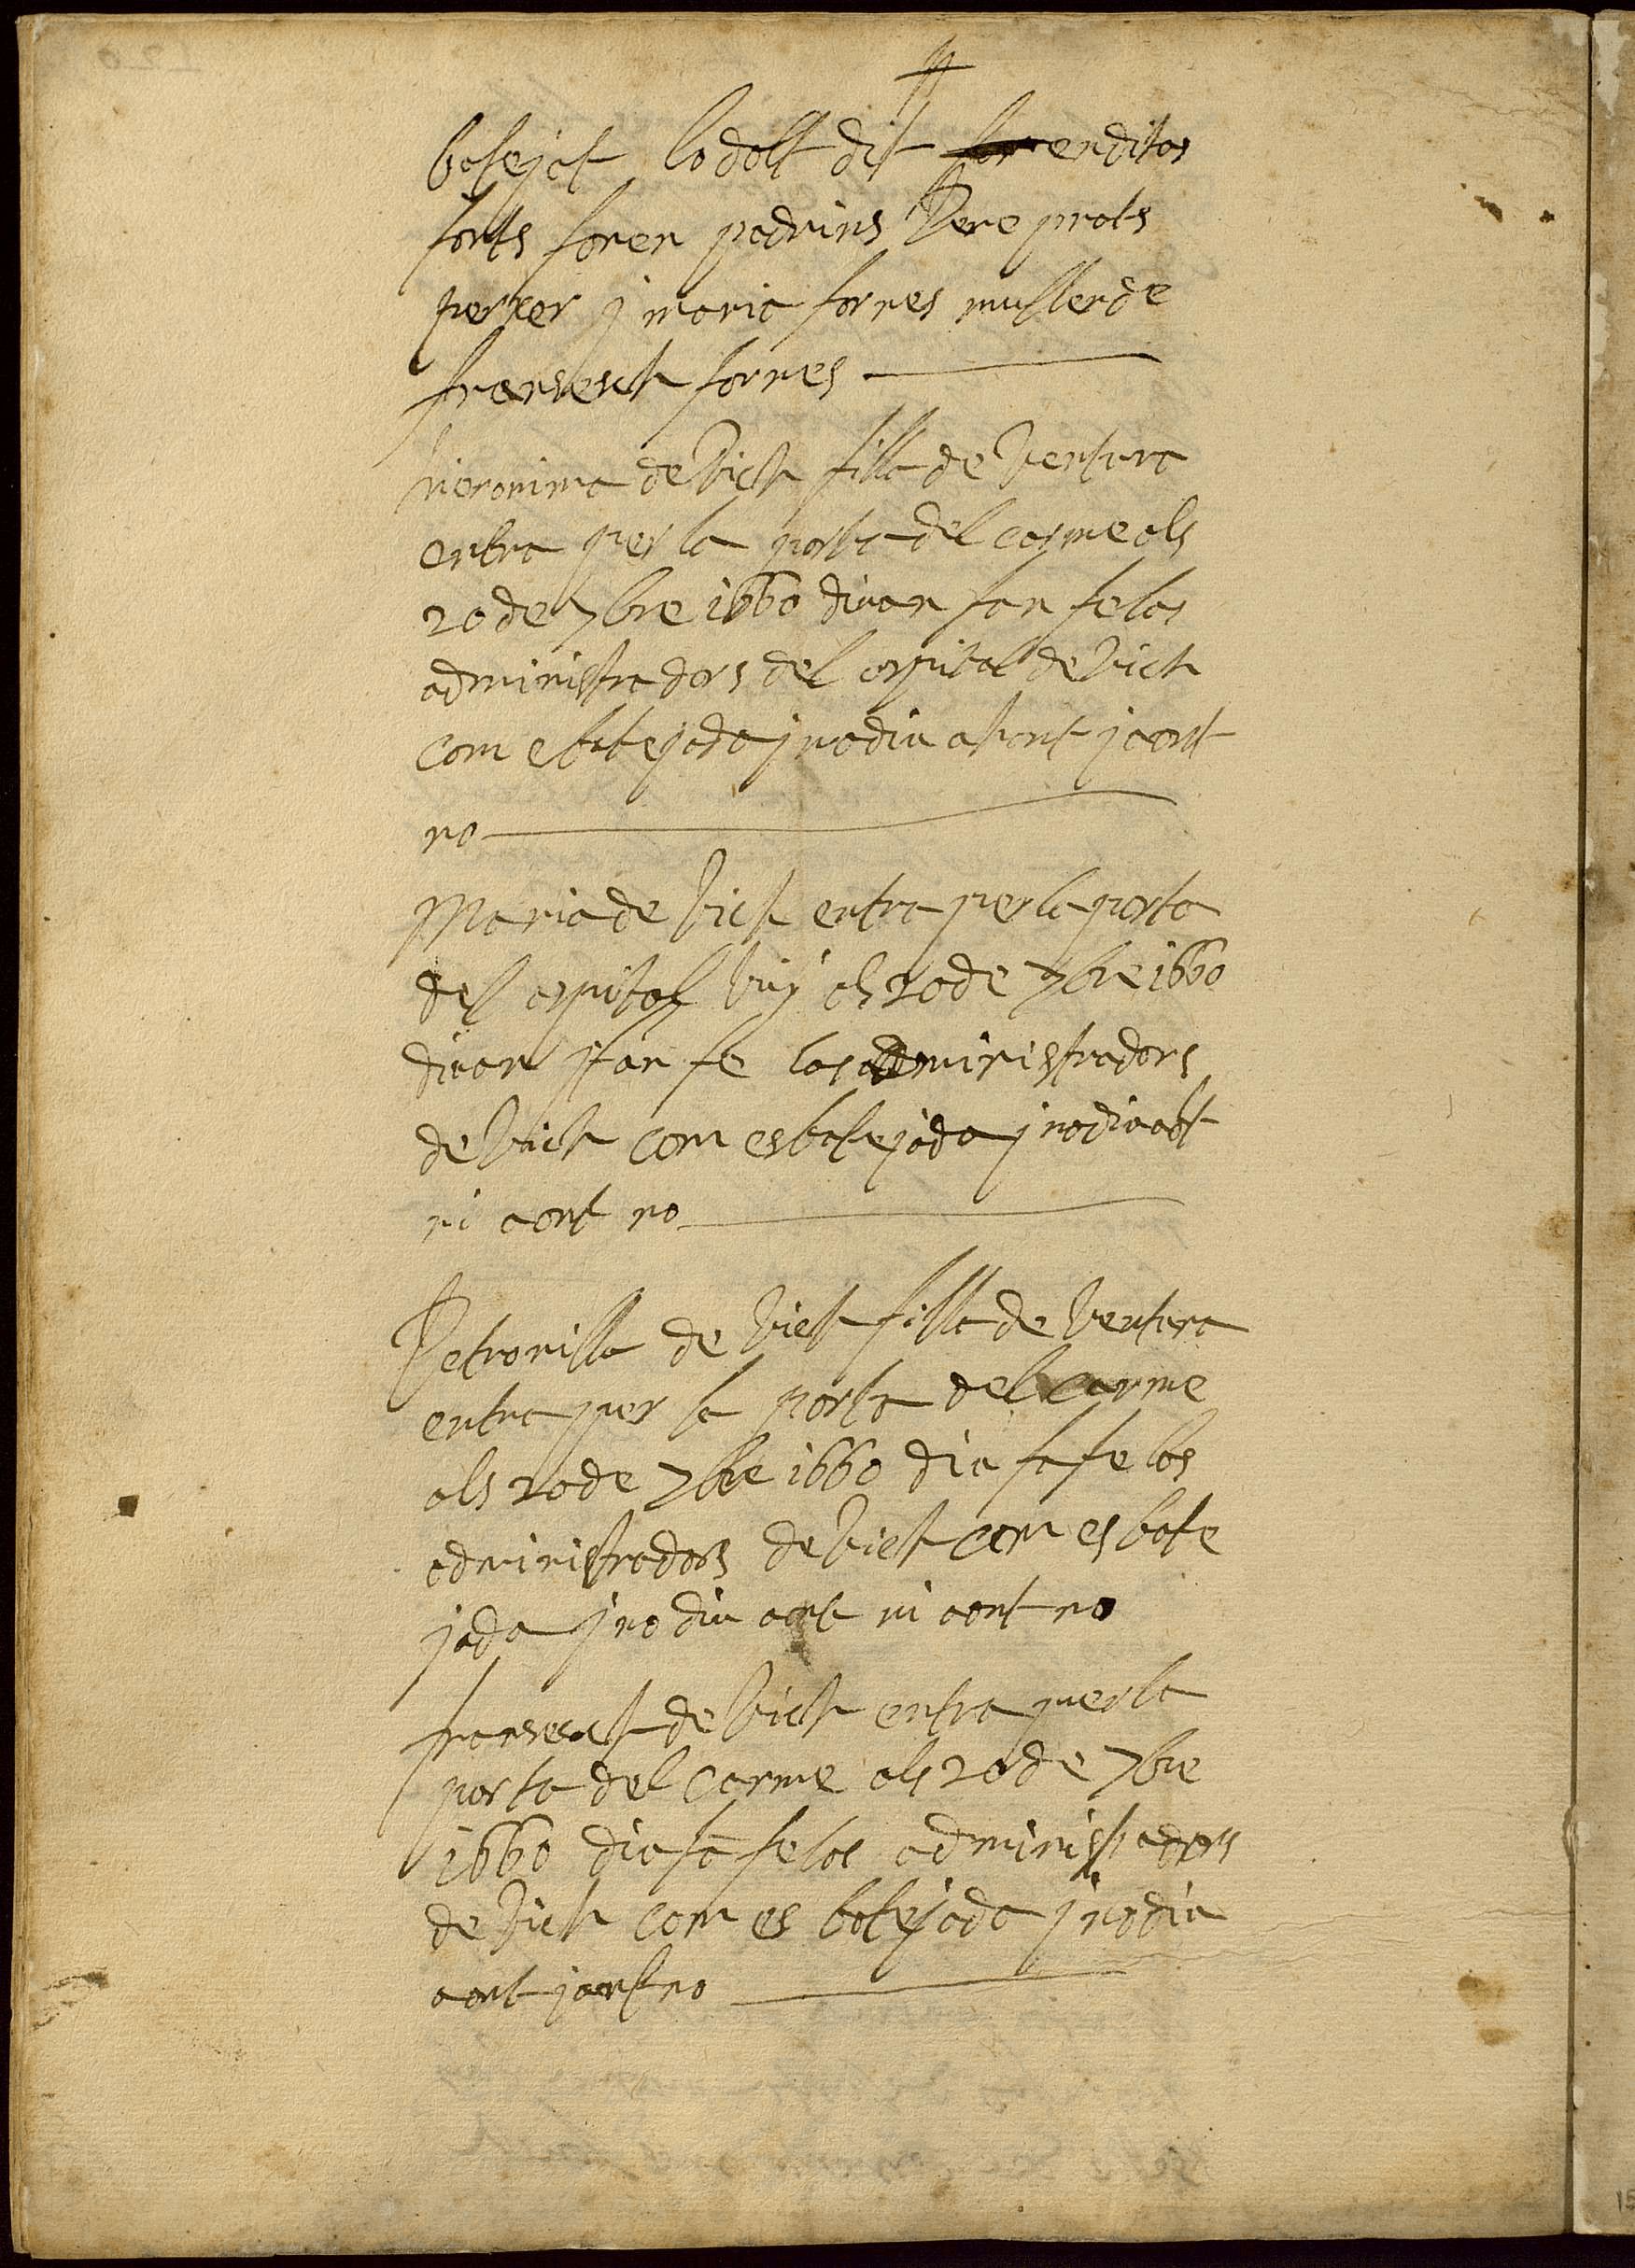 batejat lo dolt dit en ditas
fonts foren padrins Pere prats
perxer j maria fornes muller de
fransesch fornes
hieronima de Vich filla de Ventura
entra per la porta del carme als
20 de 7bre 1660 diuan fan fe los
administradors del ospital de Vich
com e batejada j no diu ahont j aont
no
Maria de Vich entra per la porta
del ospital vuÿ als 20 de 7bre 1660
diuan j fan fe los administradors
de Vich com es batejada j no diu aōt
ni aont no
Petronilla de Vich filla de Ventura
entra per la porta del carme
als 20 de 7bre 1660 diu fa fe los
administradors de Vich com es bate
jada j no diu aont ni aont no
fransech de Vich entra per la
porta del carme als 20 de 7bre
1660 diu fā fe los administradors
de Vich com es batejada j no diu
aont j aont no